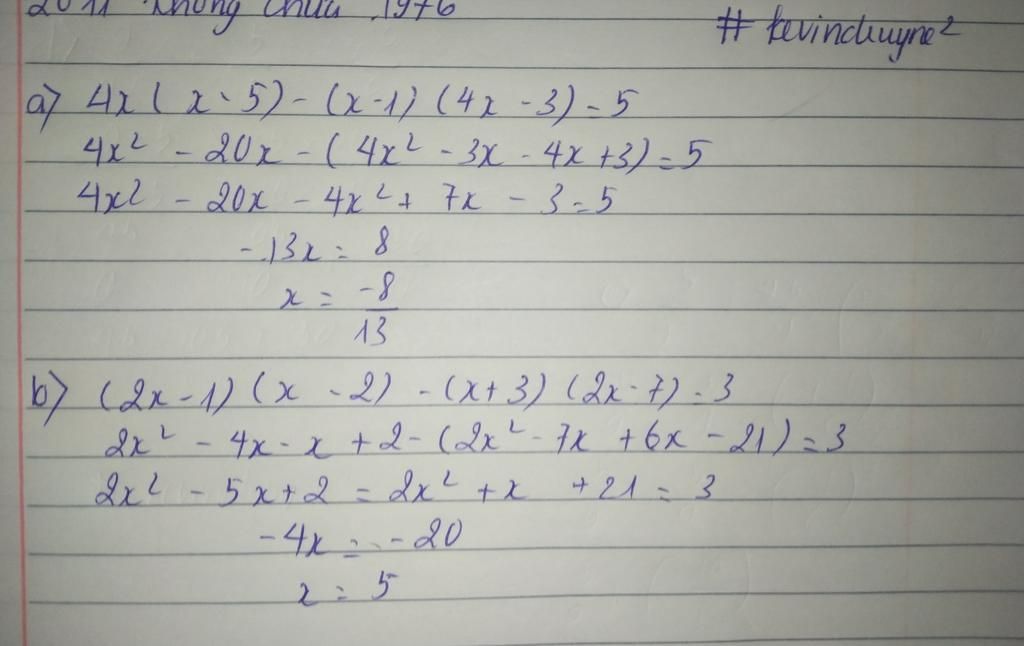 2011 không chứa 1976
# kevinchuyne²
a) 4x ( x - 5) - (x-1) (4x - 3) = 5
4x² - 20x - ( 4x² - 3x - 4x +3) = 5
4x² - 20x - 4x² + 7x - 3 = 5
-13x = 8
x = -8
13
b) (2x - 1) (x - 2) - (x+3) (2x - 7) = 3
2x² - 4x - x + 2 - (2x² - 7x + 6x - 21) = 3
2x² - 5x + 2 = 2x² + x + 21 = 3
-4x = -20
x = 5